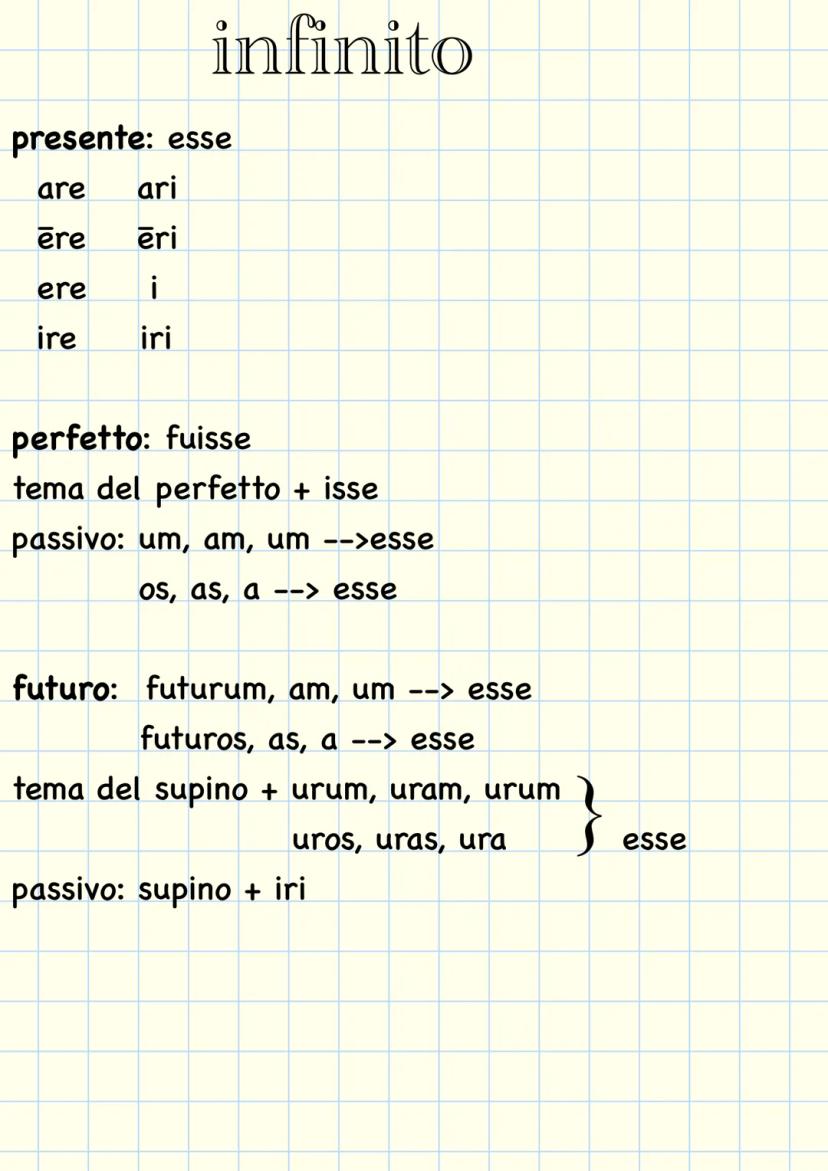 infinito
presente: esse
are ari
ēre ēri
ere i
ire iri
perfetto: fuisse
tema del perfetto + isse
passivo: um, am, um -->esse
os, as, a --> esse
futuro: futurum, am, um --> esse
futuros, as, a --> esse
tema del supino + urum, uram, urum
uros, uras, ura } esse
passivo: supino + iri